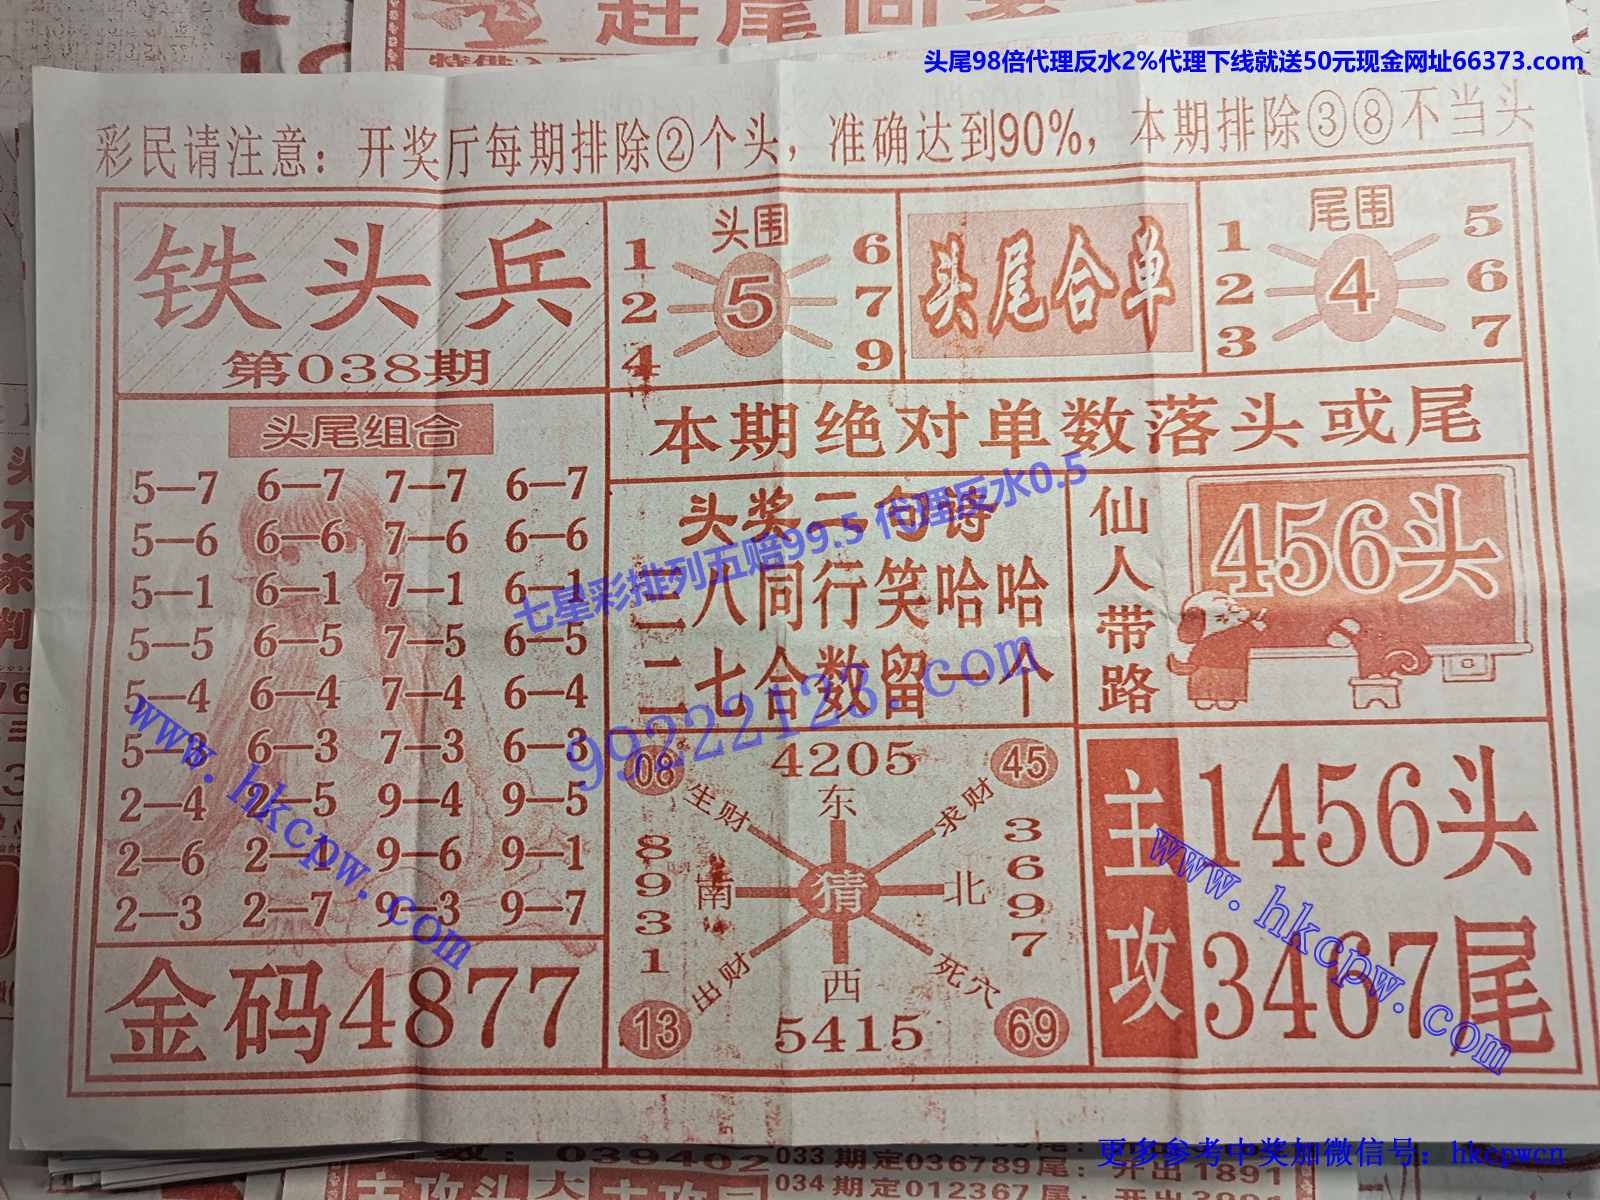 头尾98倍代理反水2%代理下线就送50元现金网址66373.com
彩民请注意：开奖厅每期排除②个头，准确达到90%，本期排除③⑧不当头
铁头兵
第038期
头围
1 6
2 5 7
4 9
头尾合单
尾围
1 5
2 4 6
3 7
本期绝对单数落头或尾
头尾组合
5—7 6—7 7—7 6—7
5—6 6—6 7—6 6—6
5—1 6—1 7—1 6—1
5—5 6—5 7—5 6—5
5—4 6—4 7—4 6—4
5—3 6—3 7—3 6—3
2—4 2—5 9—4 9—5
2—6 2—1 9—6 9—1
2—3 2—7 9—3 9—7
金码4877
头奖二句诗
八同行笑哈哈
二七合数留一个
七星彩排列五赔99.5 代理反水0.5
99222123.com
仙人带路
456头
08 4205 45
生财 东 求财
8931
南 猜 北
3697
出财 西 死穴
13 5415 69
主攻
1456头
3467尾
www.hkcpw.com
www.hkcpw.com
更多参考中奖加微信号：hkcpwcn
数：039402
033期定036789尾：开出1891
034期定012367尾：